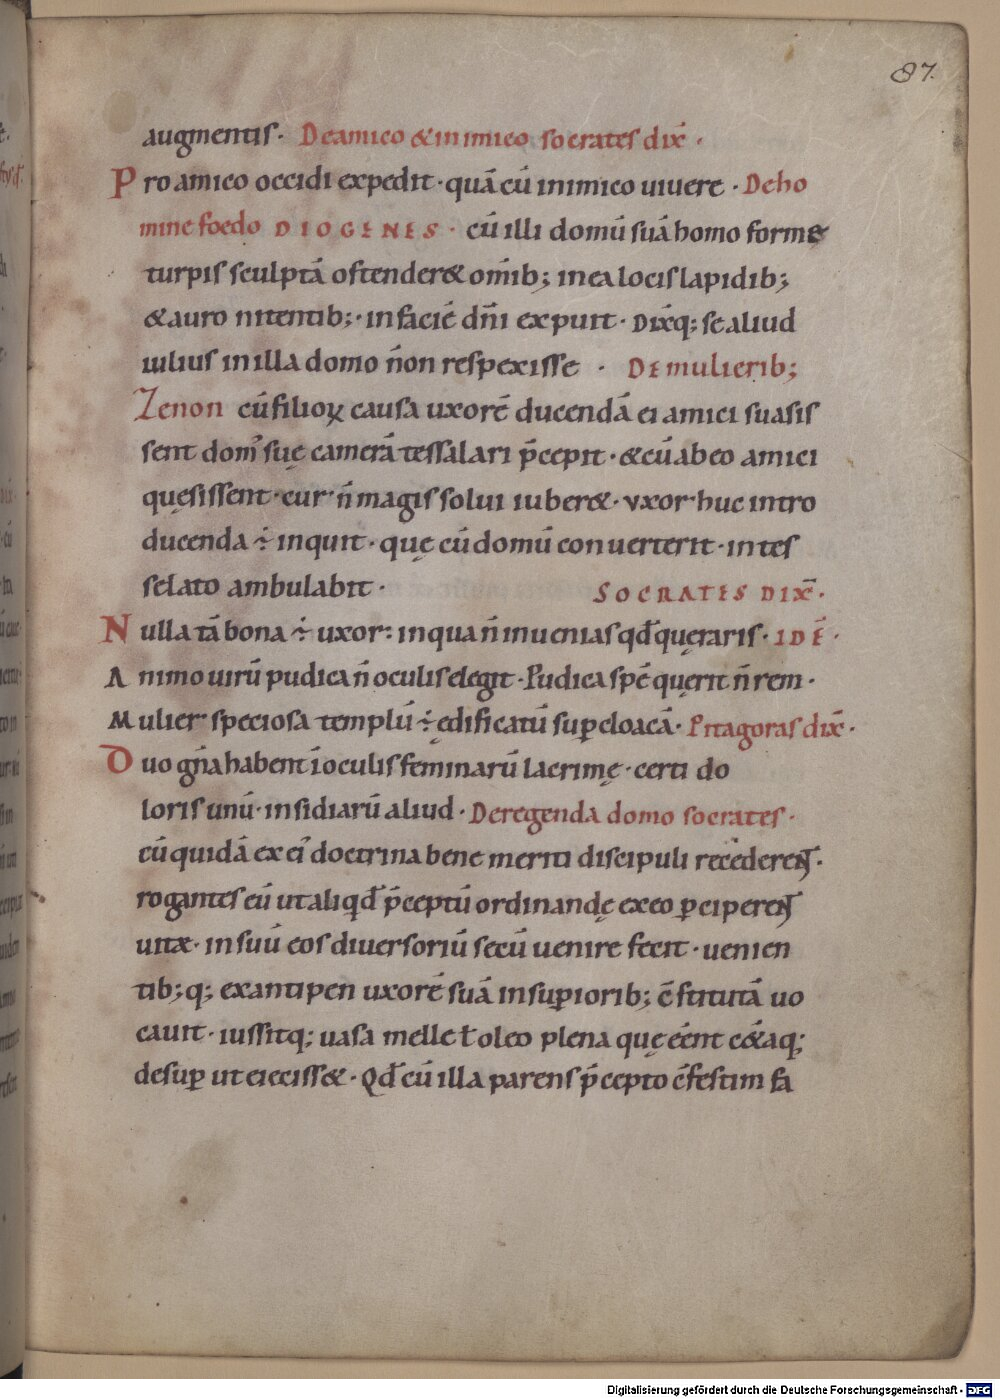 87.
augmentis· De amico & inimico socrates dix̅·
Pro amico occidi expedit· quā cū inimico uiuere· De ho
mine foedo DIOGENES· cū illi domū suā homo formę
turpis sculptā ostender& om̅ib; in ea locis lapidib;
& auro nitentib;· in faciē dn̅i expuit· Dix̅q; se aliud
uilius in illa domo n̅on respexisse · DE mulierib;
Zenon cū filioꝝ causa uxorē ducendā ei amici suasis
sent dom᾽ suę camerā tessalari p̅cepit· & cū ab eo amici
quęsissent· cur n̅ magis solui iuber&· vxor huc intro
ducenda ÷ inquit· quę cū domū conuerterit· in tes
selato ambulabit· SOCRATES DIX̅·
Nulla tā bona ÷ uxor: in qua n̅ inuenias qd̅ quęraris· IDĒ·
Animo uirū pudica n̅ oculis elegit· Pudica spē quęrit n̅ rem·
Mulier speciosa templū ÷ ędificatū sup cloacā· Pitagoras dix̅·
Duo gn̅a habent ī oculis feminarū lacrimę· certi do
loris unū· insidiarū aliud· De regenda domo socrates·
cū quidā ex ei᾽ doctrina bene meriti discipuli recederent·
rogantes eū ut aliqd̅ p̅ceptū ordinandę ex eo ꝑciperent
uitæ· in suū eos diuersoriū secū uenire fecit· uenien
tib;q; exantipen uxorē suā in supiorib; c̅stitutā uo
cauit· iussitq; uasa melle ł oleo plena quę ēent c& aq;
desup ut eiecisse&· Qd̅ cū illa parens p̅cepto c̅festim fa
Digitalisierung gefördert durch die Deutsche Forschungsgemeinschaft - DFG